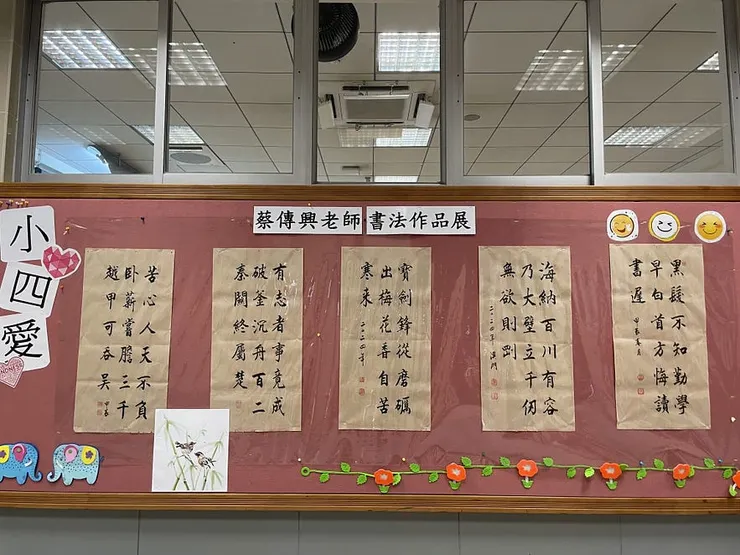 蔡傳興老師 書法作品展
小四愛
黑髮不知勤學
早白首方悔讀
書遲
海納百川有容
乃大壁立千仞
無欲則剛
二〇二四年 澳門
寶劍鋒從磨礪
出梅花香自苦
寒來
二〇二四年
有志者事竟成
破釜沉舟百二
秦關終屬楚
苦心人天不負
臥薪嘗膽三千
越甲可吞吳
甲辰